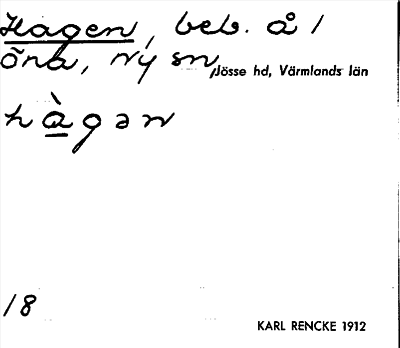 Hagen, beb. å 1
öna, Ny sn, Jösse hd, Värmlands län
hàgən
18
KARL RENCKE 1912